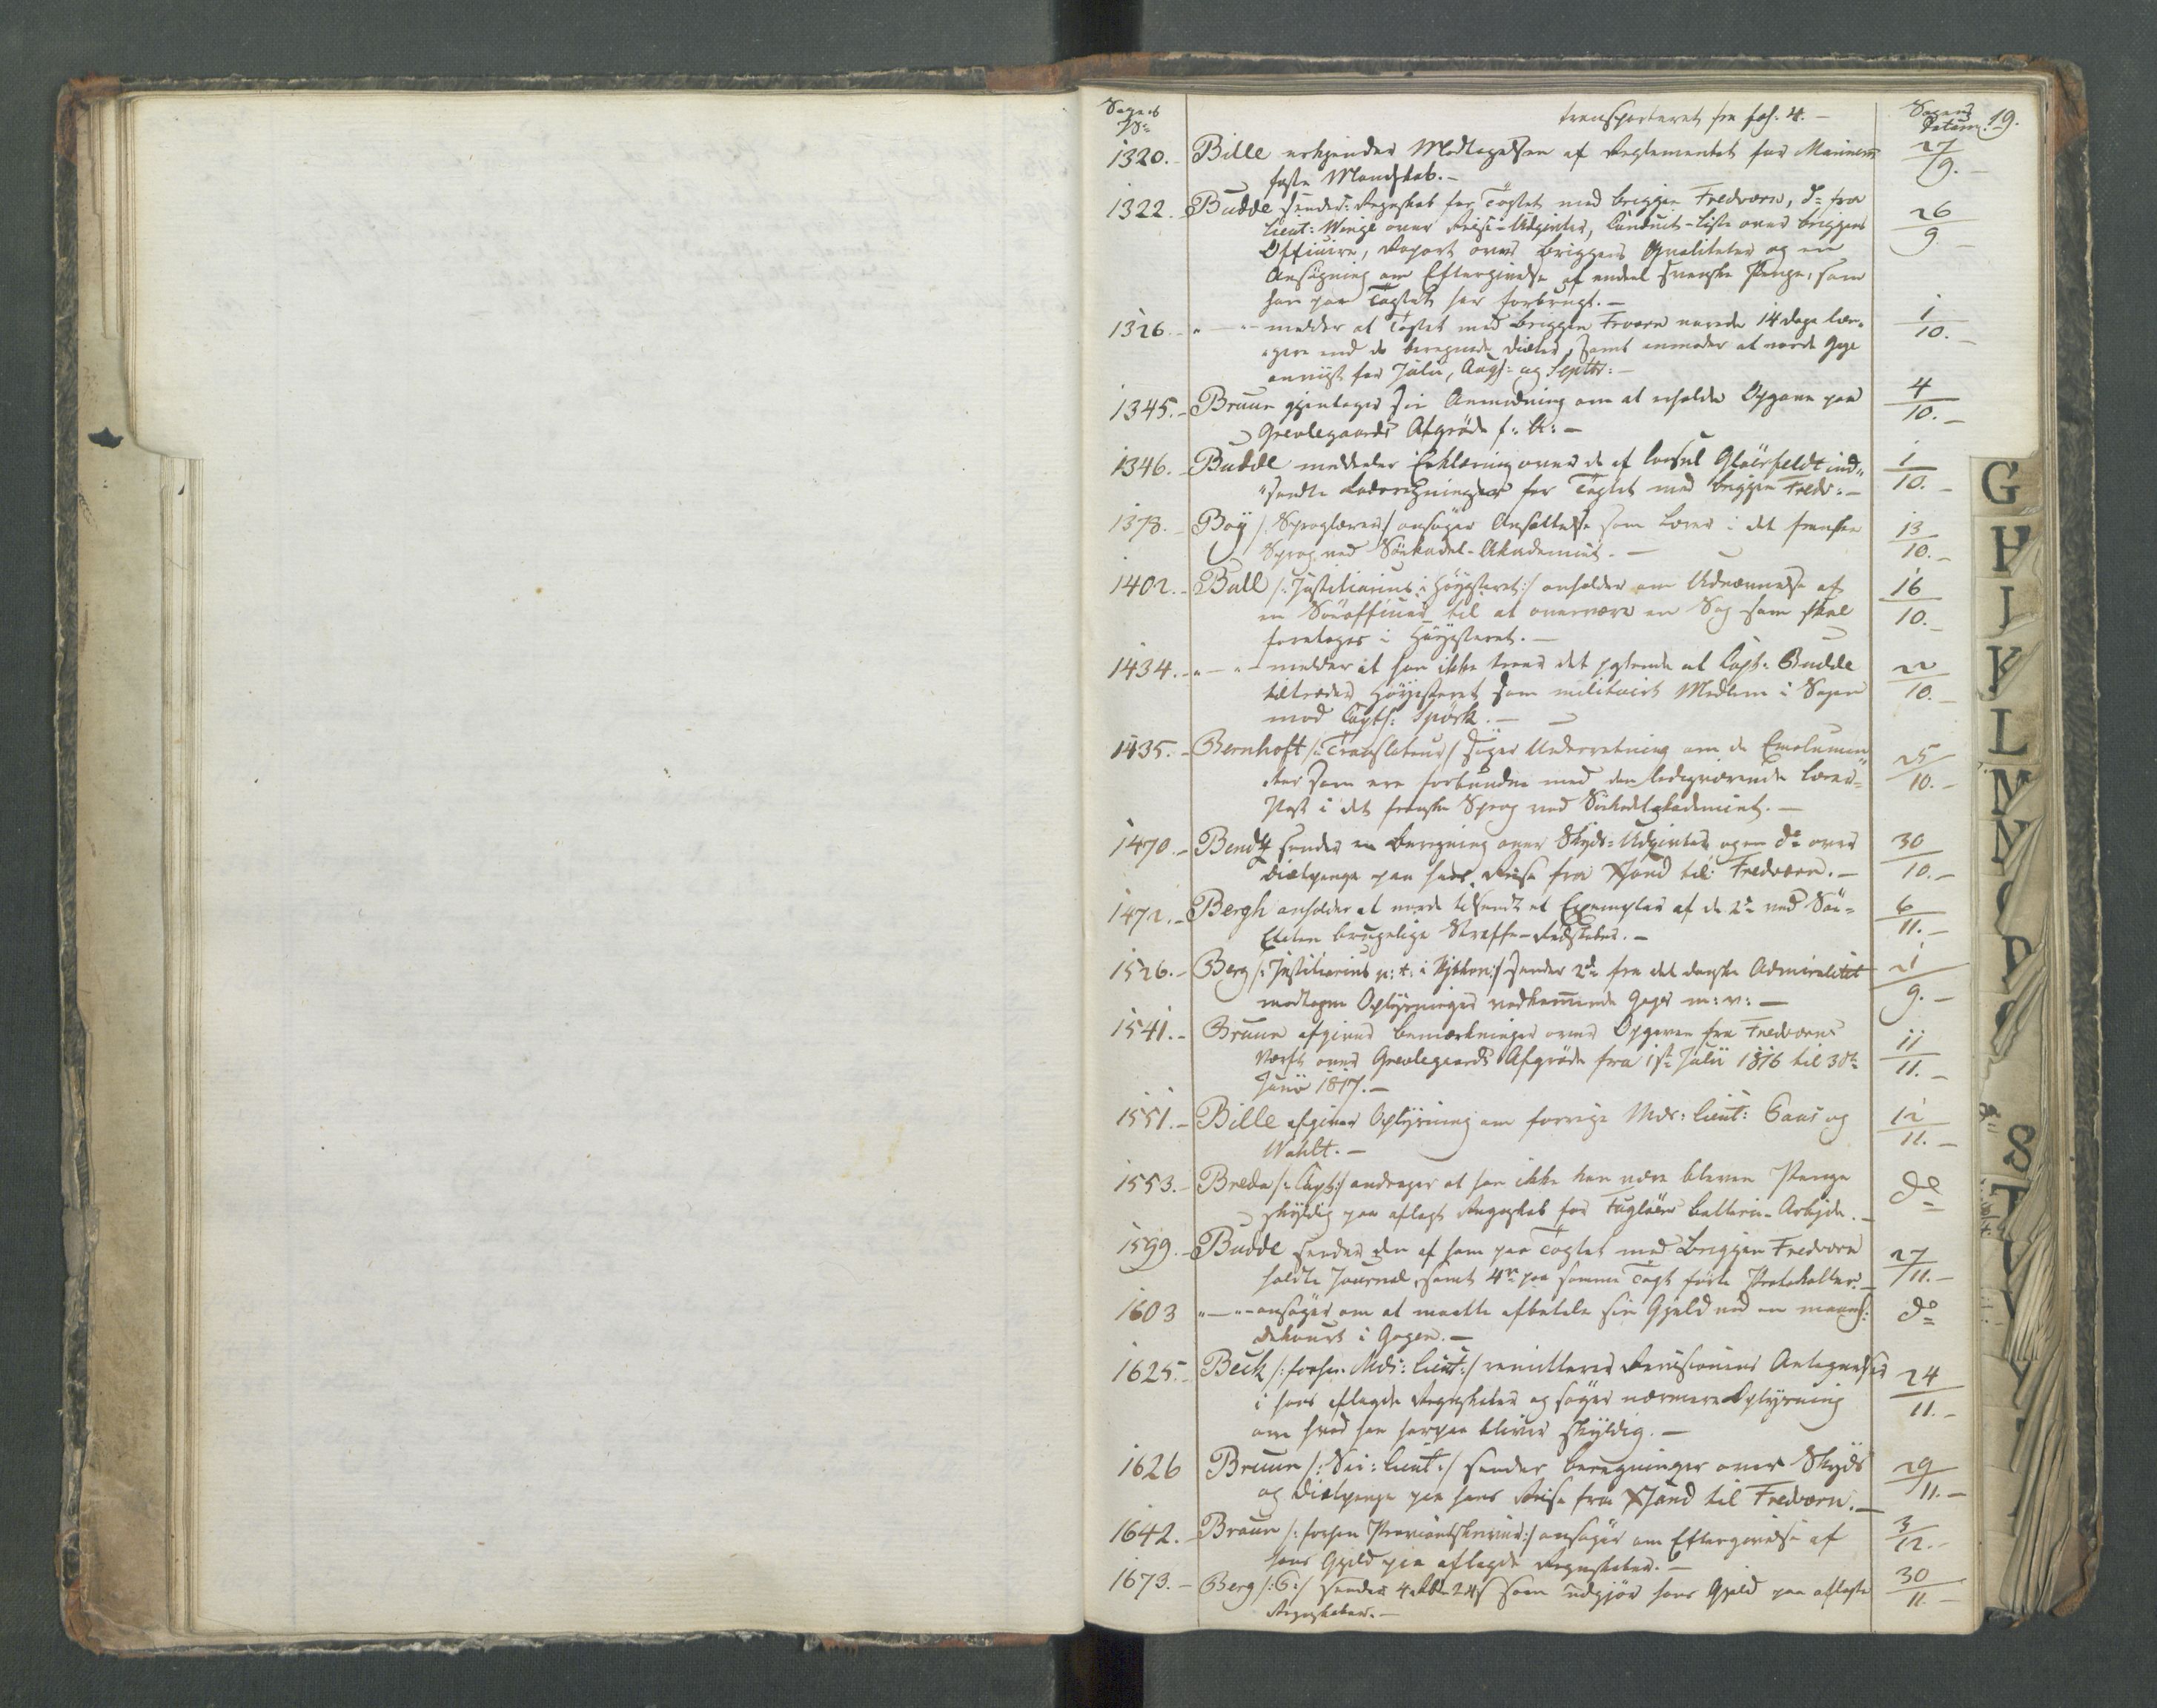 Sagens
No
transporteret fra fol. 4. —
Sagens
Datum. 19.
1320. Bille erkjender Modtagelsen af Reglementet for Marinens 27/9. —
faste Mandskab. —
1322. Budde sender Regnskab for Togtet med briggen Fredværn, do fra 26/9 —
Lieut: Winge over Reise-Udgivter, Conduit-Liste over briggens
Officiere, Raport over briggens Qvaliteter og en
Ansøgning om Eftergivelse af endeel svenske Penge, som
han paa Togtet har forbrugt. —
1326. " — " — melder at Togtet med briggen Frværn varede 14 dage læn- 1/10. —
gere end de beregnede Diæter, samt anmoder at vorde Gage
anviist for Julii, Augs: og Septbr: —
1345. — Bruun gjentager sin Anmodning om at erholde Opgave paa 4/10. —
Grevlegaards Afgrøde f: A: —
1346. — Budde meddeler Erklæring over de af Consul Gløerfeldt ind- 1/10. —
sendte Regninger for Togtet med briggen Fredv: —
1378. — Boÿ /: Sproglærer :/ ansøger Ansættelse som Lærer i det franske 13/10. —
Sprog ved Søekadet-Akademiet. —
1402. — Bull /: Justitiarius i Høyesteret :/ anholder om Udnævnelse af 16/10. —
en Søeofficier til at overvære en Sag som skal
foretages i Høyesteret. —
1434. — " — " — melder at han ikke troer det passende at Capt: Budde 22/10. —
tiltræder Høyesteret som militairt Medlem i Sagen
mod Capt: Spörck. —
1435. — Bernhoft /: Translateur :/ søger Underretning om de Emolumen- 25/10. —
ter som ere forbundne med den ledigværende Lærer-
Post i det franske Sprog ved Søekadetakademiet. —
1470. — Bendz sender en beregning over Skyds-Udgivter og en do over 30/10. —
Diætpenge paa hans Reise fra Xsand til Fredværn. —
1472. — Bergh anholder at vorde tilsendt et Exemplar af de 2de ved Søe- 6/11. —
Etaten brugelige Straffe-Redskaber. —
1526. — Berg /: Justitiarius p: t: i :/ sender 2de fra det danske Admiralitet 21/9. —
modtagne Oplysninger vedkommende Gager m: v: —
1541. — Bruun afgiver bemærkninger over Opgaven fra Fredværns 11/11. —
Værft over Grevlegaards Afgrøde fra 1ste Julii 1816 til 30te
Junii 1817. —
1551. — Bille afgiver Oplysning om forrige Mds: Lieut: Gaas og 12/11. —
Wahlt. —
1553. — Breda /: Capt :/ andrager at han ikke kan være bleven Penge do
skyldig paa aflagt Regnskab for Fugløens batterie-Arbejde. —
1599. — Budde sender den af ham paa Togtet med briggen Fredværn 27/11. —
holdte Journal, samt 4re paa samme Togt førte Protokoller. —
1603 " — " — ansøger om at maatte afbetale sin Gjeld ved en maaneds: do
dekourt i Gagen. —
1625. Beck /: forhen Mds: Lieut: :/ remitterer Revisionens Antegnelser 24/11. —
i hans aflagde Regnskaber og søger nærmere Oplysning
om hvad han herpaa bliver skyldig. —
1626 Bruun /: Sec: Lieut: :/ sender beregninger over Skyds 29/11. —
og Diætpenge paa hans Reise fra Xsand til Fredværn. —
1642. — Bruun /: forhen Proviantskriver :/ ansøger om Eftergivelse af 3/12. —
hans Gjeld paa aflagde Regnskaber. —
1673. — Berg /: G: :/ sender 4 Rbd 24 s som udgjør hans Gjeld paa aflagte 30/11 —
Regnskaber. —
G
H
J
K
L
M
N
O
P
S
T
V
Y